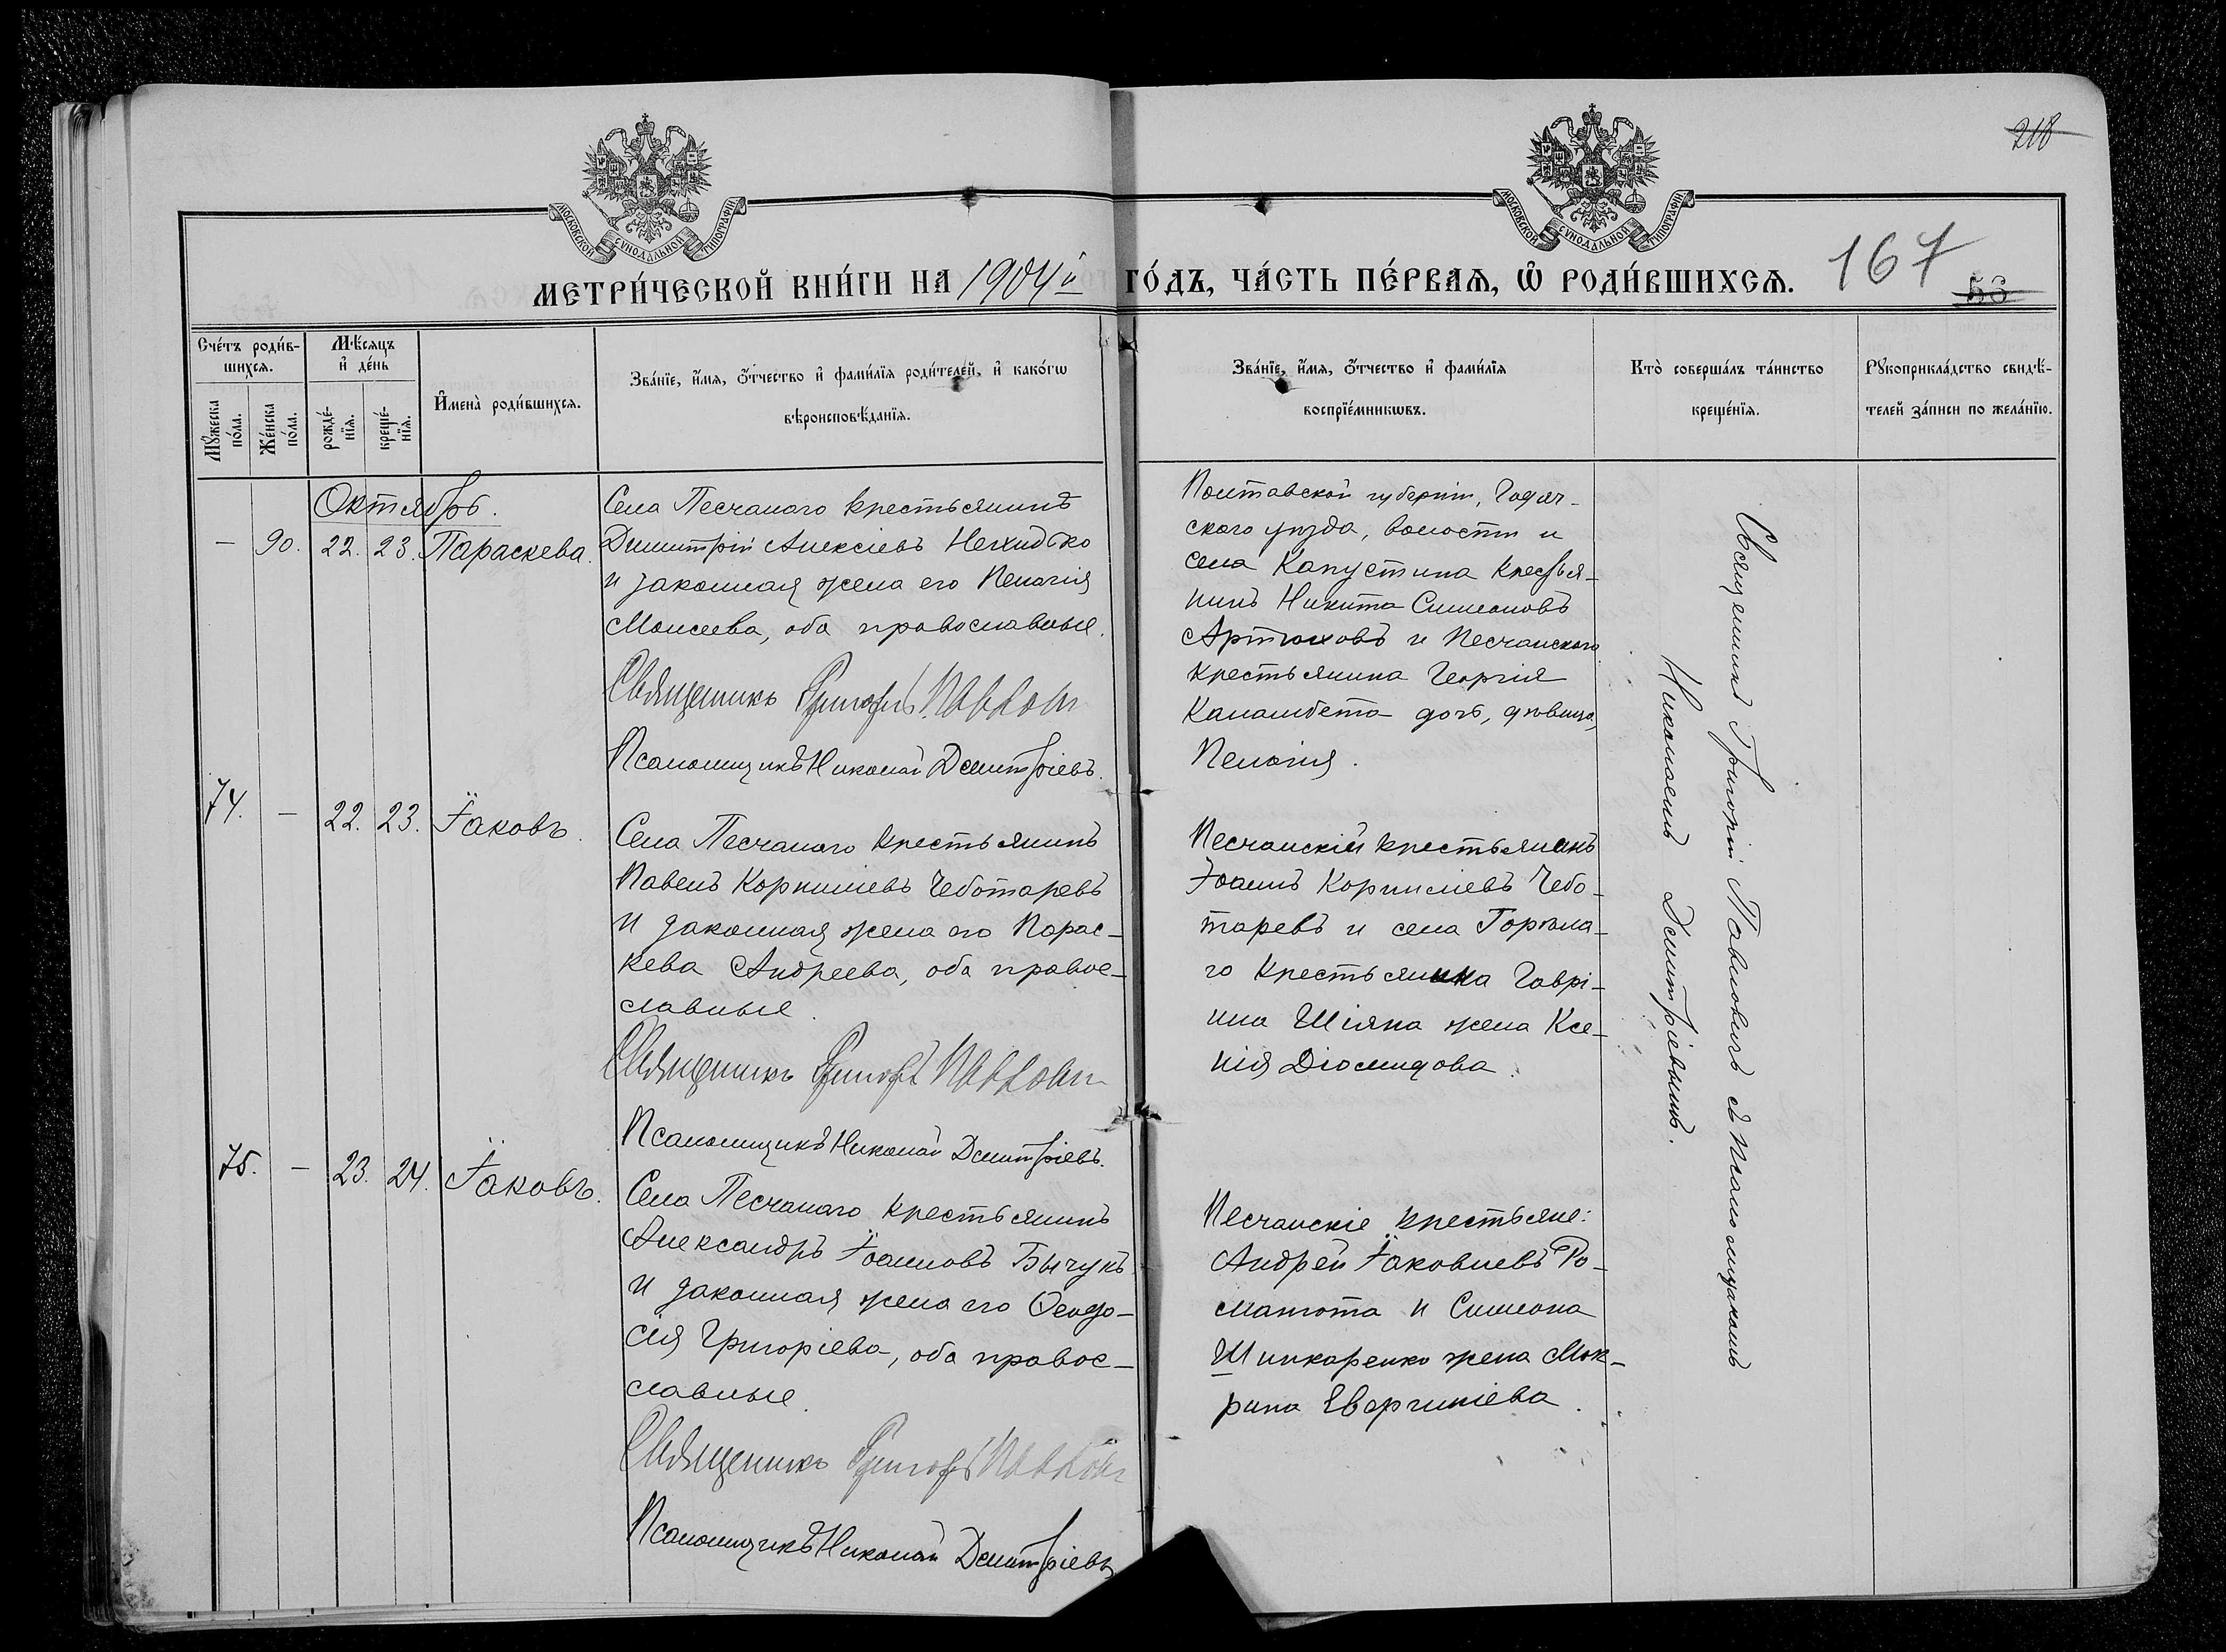 218
МОСКОВСКОЙ СУНОДАЛЬНОЙ ТИПОГРАФІИ
МОСКОВСКОЙ СУНОДАЛЬНОЙ ТИПОГРАФІИ
МЕТРИ́ЧЕСКОЙ КНИ́ГИ НА 1904й ГО́ДЪ, ЧА́СТЬ ПЕ́РВАЯ, Ѽ РОДИ́ВШИХСЯ.
167
53
Сче́тъ роди́в-
шихся.
Мѣ́сяцъ
и҆ де́нь
Мꙋ́жеска
по́ла.
Же́нска
по́ла.
рожде́-
нїя.
креще́-
нїя.
И҆мена̀ роди́вшихся.
Зва́нїе, и҆́мя, ѻ҆́тчество и҆ фами́лїя роди́телей, и҆ како́гѡ
вѣроисповѣ́данїя.
Зва́нїе, и҆́мя, ѻ҆́тчество и҆ фами́лїя
воспрїе́мникѡвъ.
Кто̀ соверша́лъ та́инство
креще́нїя.
Рꙋкоприкла́дство свидѣ́-
телей за́писи по жела́нїю.
Октябрь.
— 90. 22. 23. Параскева.
Села Песчаного крестьянинъ
Димитрій Алексіевъ Нехидько
и законная жена его Пелагія
Моисеева, оба православные.
Священникъ Григорій Павлович
Псаломщикъ Николай Димитріевъ.
Полтавской губерніи, Гадяч-
ского уѣзда, волости и
села Капустина крестья-
нинъ Никита Симеоновъ
Артюховъ и Песчанского
крестьянина Георгія
Каламбета дочь, дѣвица,
Пелагія.
74. — 22. 23. Іаковъ.
Села Песчаного крестьянинъ
Павелъ Корниліевъ Чеботаревъ
и законная жена его Парас-
кева Андреева, оба право-
славные.
Священникъ Григорій Павлович
Псаломщикъ Николай Димитріевъ.
Песчанскій крестьянинъ
Іоаннъ Корниліевъ Чебо-
таревъ и села Горѣла-
го крестьянина Гаврі-
ила Шіяна жена Ксе-
нія Діомидова.
75. — 23. 24. Іаковъ.
Села Песчаного крестьянинъ
Александръ Іоанновъ Бычукъ
и законная жена его Ѳеодо-
сія Григоріева, оба право-
славные.
Священникъ Григорій Павлович
Псаломщикъ Николай Димитріевъ
Песчанскіе крестьяне:
Андрей Іаковлевъ Ро-
манюта и Симеона
Шинкаренко жена Мок-
рина Іваргиніева.
Священникъ Григорій Павловичъ съ псаломщикомъ
Николаемъ Димитріевымъ.